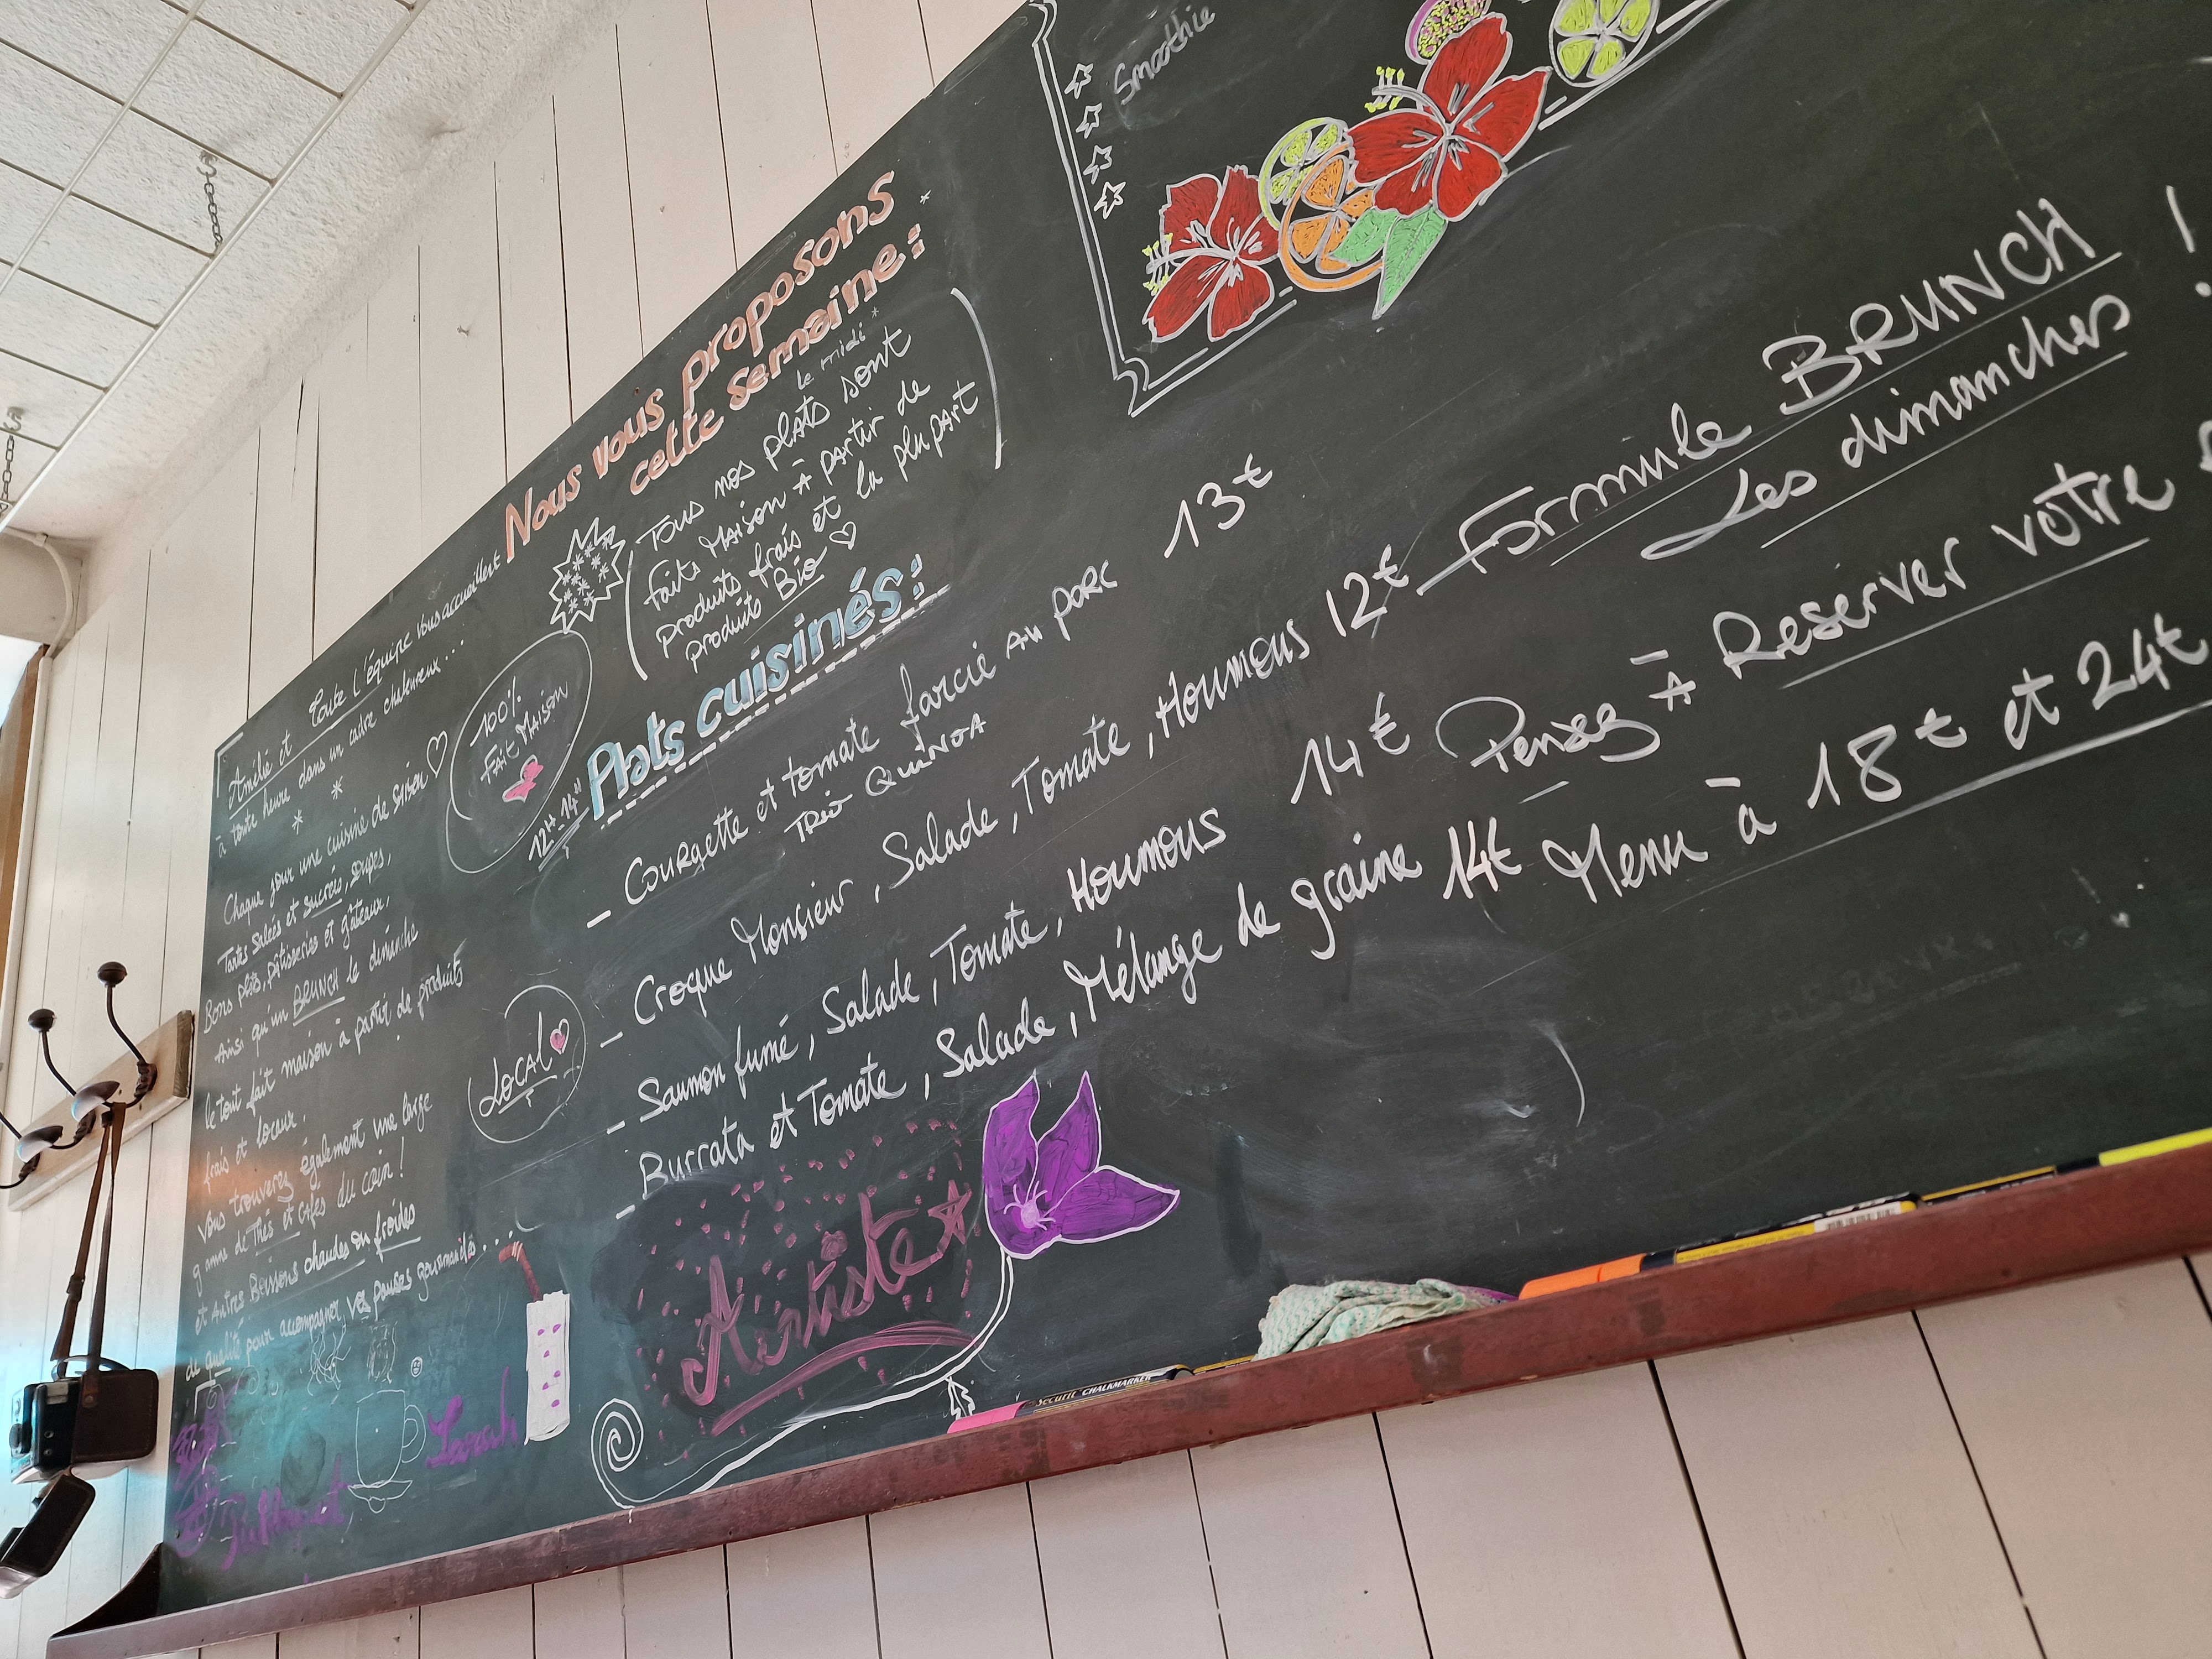 Amélie et toute l'équipe vous accueillent
à toute heure dans un cadre chaleureux...
* *
Chaque jour une cuisine de saison
Tartes salées et sucrées, soupes,
Bons plats, pâtisseries et gâteaux,
Ainsi qu'un BRUNCH le dimanche
le tout fait maison à partir de produits
frais et locaux.
Vous trouverez également une large
gamme de Thés et cafés du coin !
et Autres Boissons chaudes ou froides
de qualité pour accompagner vos pauses gourmandes...
Sarah
Nous vous proposons
cette semaine :
le midi
(Tous nos plats sont
faits Maison à partir de
produits frais et la plupart
produits Bio)
100%
Fait Maison
12H-14H
Plats cuisinés :
LOCAL
- Courgette et tomate farcie au porc 13€
Trio Quinoa
- Croque Monsieur, Salade, Tomate, Houmous 12€
- Saumon fumé, Salade, Tomate, Houmous 14€
- Burrata et Tomate, Salade, Mélange de graine 14€
Artiste
Smoothie
Formule BRUNCH
Les dimanches !
Pensez à Reserver votre
Menu à 18€ et 24€
Securit CHALKMARKER